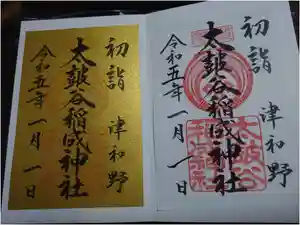 初詣 津和野
太皷谷稲成神社
令和五年一月一日
初詣 津和野
太皷谷稲成神社
令和五年一月一日